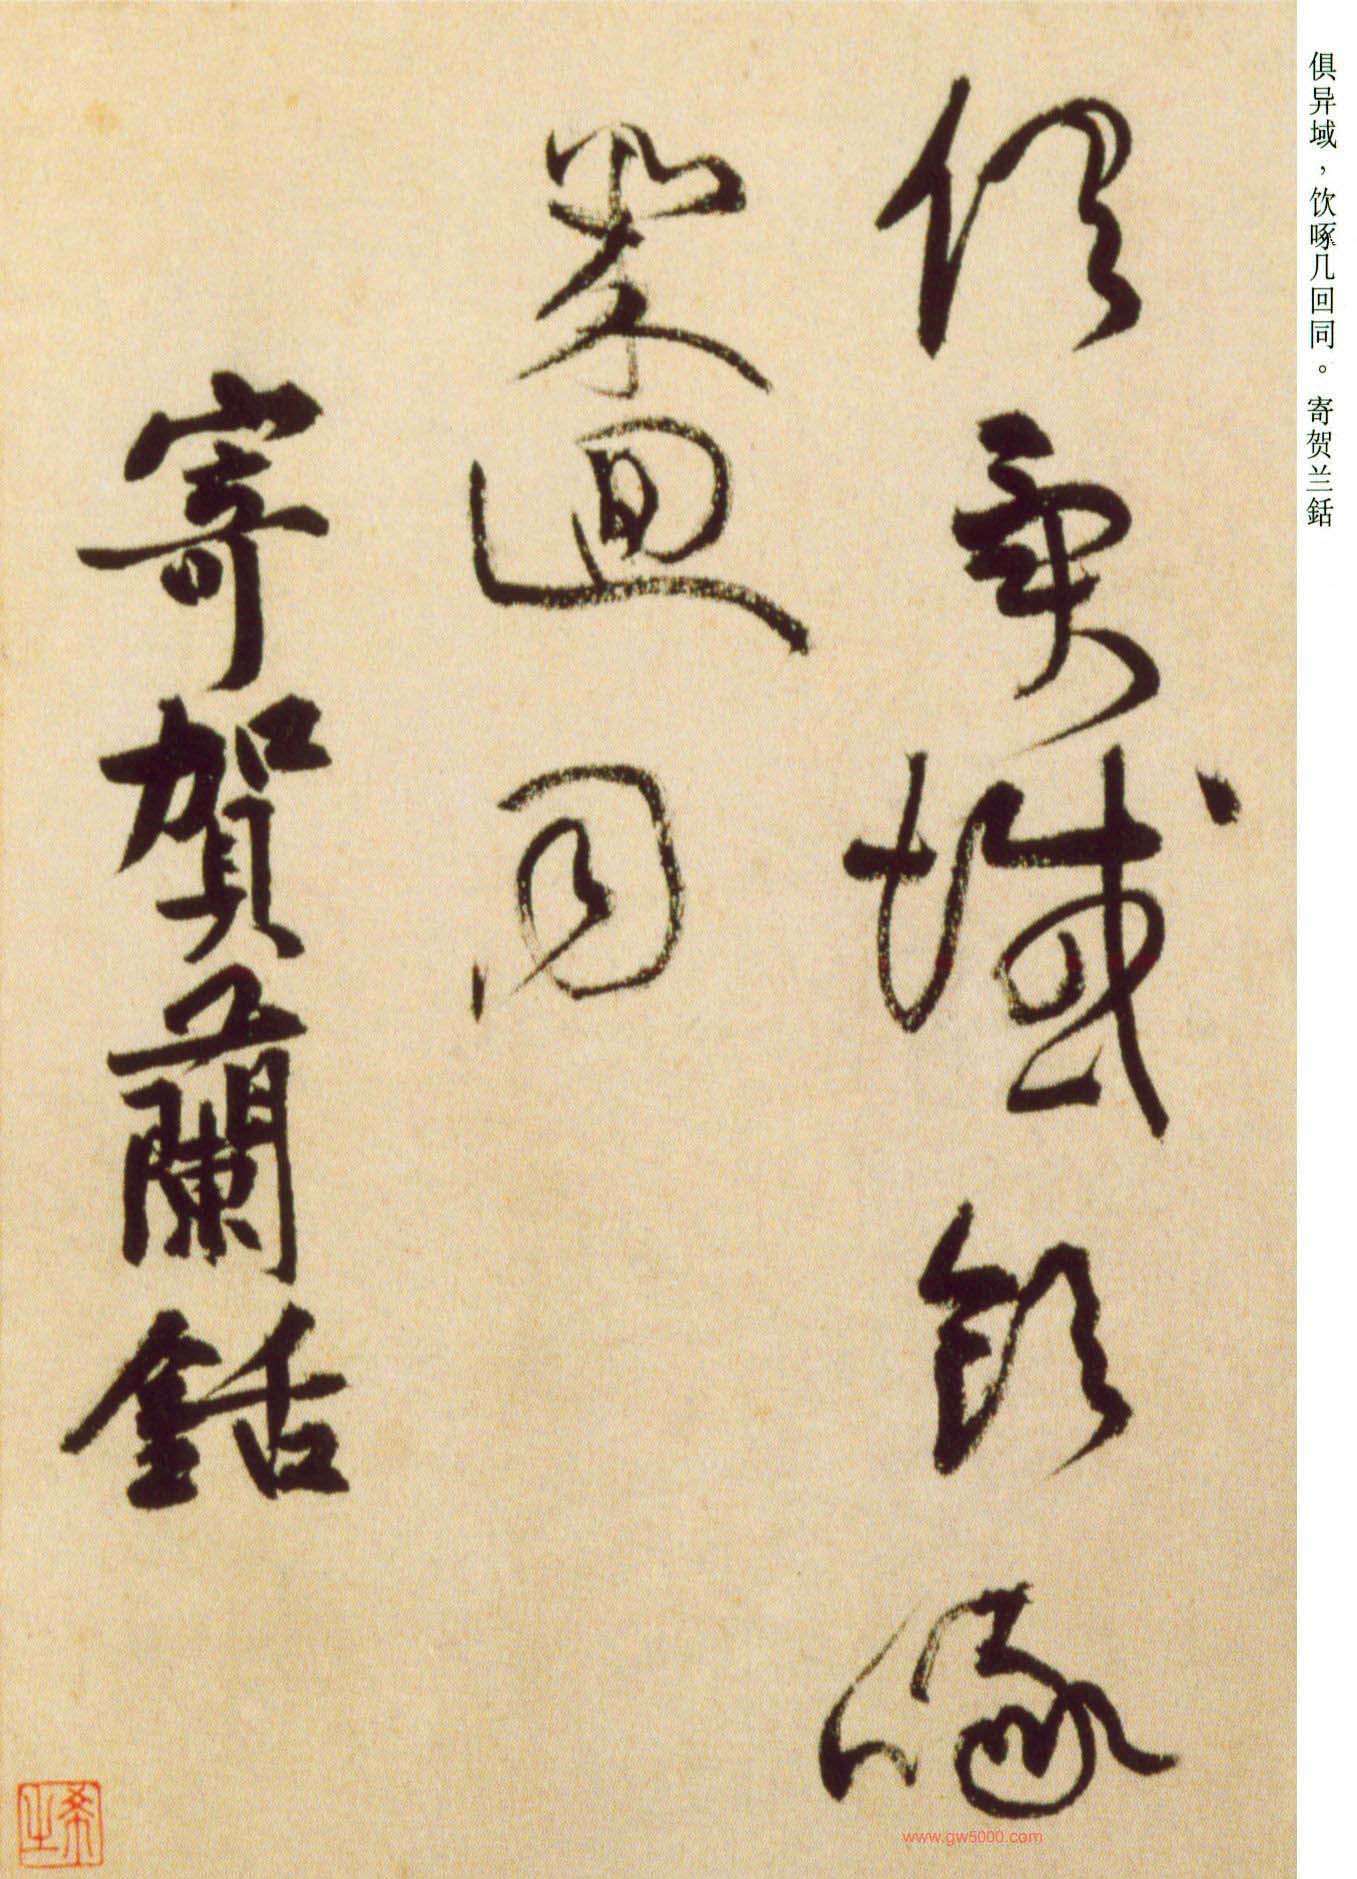 俱異域飲啄
幾迴同
寄賀蘭銛
俱异域，饮啄几回同。寄贺兰銛
www.gw5000.com